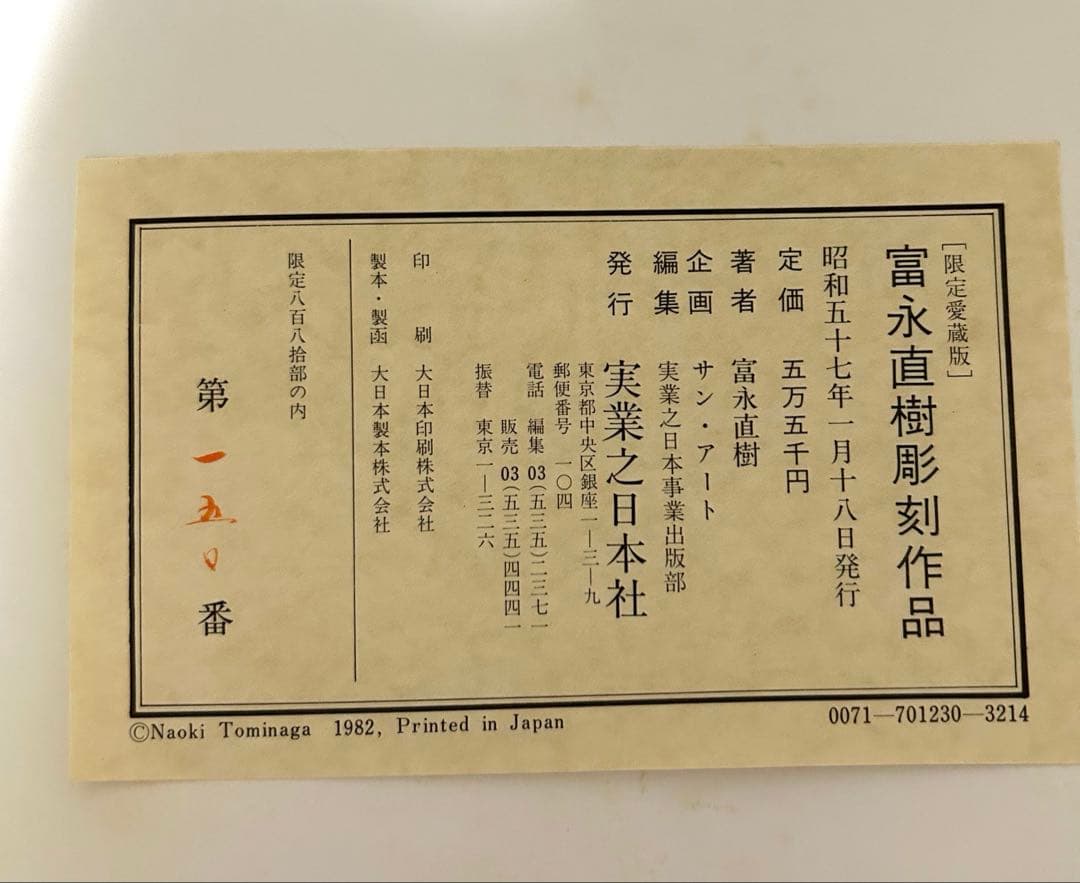 ［限定愛蔵版］
富永直樹彫刻作品
昭和五十七年一月十八日発行
定価　五万五千円
著者　富永直樹
企画　サン・アート
編集　実業之日本事業出版部
発行　実業之日本社
東京都中央区銀座一—三—九
郵便番号　一〇四
電話　編集 03（五三五）二三七一
販売 03（五三五）四四四一
振替　東京一—三二六
印刷　大日本印刷株式会社
製本・製函　大日本製本株式会社
限定八百八拾部の内
第一五〇番
©Naoki Tominaga　1982, Printed in Japan
0071—701230—3214